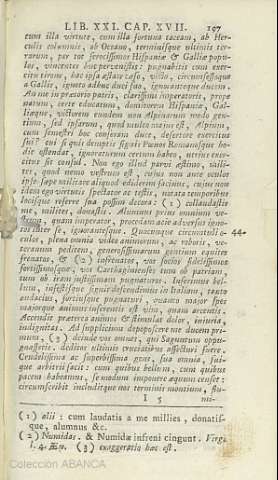 LIB. XXI. CAP. XVII. 197
cum illa virtute, cum illa fortuna taceam, ab Her-
culis columnis, ab Oceano, terminisque ultimis ter-
rarum, per tot ferocissimos Hispaniæ & Galliæ popu-
los, vincentes huc pervenistis: pugnabitis cum exer-
citu tirone, hac ipsa æstate cæso, victo, circumsesso
a Gallis, ignoto adhuc duci suo, ignoranteque ducem.
An me in prætorio patris, clarissimi imperatoris, prope
natum, certe educatum, domitorem Hispaniæ, Gal-
liæque, victorem eundem non Alpinarum modo gen-
tium, sed ipsarum, quod multo majus est, Alpium,
cum semestri hoc conferam duce, desertore exercitus
sui? cui si quis demptis signis Pœnos Romanosque ho-
die ostendat, ignoraturum certum habeo, utrius exer-
citus sit consul. Non ego illud parvi æstimo, mili-
tes, quod nemo vestrum est, cujus non ante oculos
ipse sæpe militare aliquod ediderim facinus, cui non
idem ego virtutis spectator ac testis, notata temporibus
locisque referre sua possim decora: (1) collaudastis
me, milites, donatis. Alumnus prius omnium ve-
strum, quam imperator, procedam acie adversus igno-
tos inter se, ignorantesque. Quacunque circumtuli o- 44.
culos, plena omnia video animorum, ac roboris, ve-
teranum peditem, generosissimarum gentium equites
frenatos, & (2) infrenatos, vos socios fidelissimos
fortissimosque, vos Carthaginienses tum ob patriam,
tum ob iram justissimam pugnaturos. Inferimus bel-
lum, infestisque signis descendimus in Italiam, tanto
audacius, fortiusque pugnaturi, quanto major spes
majorque animus inferentis est vim, quam arcentis.
Accendit præterea animos & stimulat dolor, injuria,
indignitas. Ad supplicium depoposcere me ducem pri-
mum, (3) deinde vos omnes, qui Saguntum oppu-
gnassetis. deditos ultimis cruciatibus affecturi fuere.
Crudelissima ac superbissima gens, sua omnia, sui-
que arbitrii facit: cum quibus bellum, cum quibus
pacem habeamus, se modum imponere æquum censet:
circumscribit includitque nos terminis montium, flu-
I 3 mi-
(1) alii: cum laudatis a me millies, donatis-
que, alumnus &c.
(2) Numidas. & Numidæ infreni cingunt. Virg.
l. 4. Æn. (3) exaggeratio hæc est.
Colección ABANCA